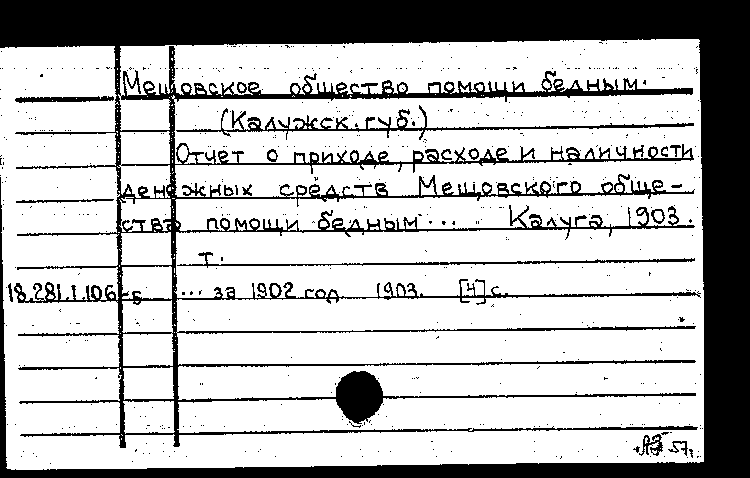 Мещовское общество помощи бедным.
(Калужск.губ.)
Отчет о приходе, расходе и наличности
денежных средств Мещовского обще-
ства помощи бедным... Калуга, 1903.
т.
18.281.1.106-б ... за 1902 год 1903. [4] с.
57г.